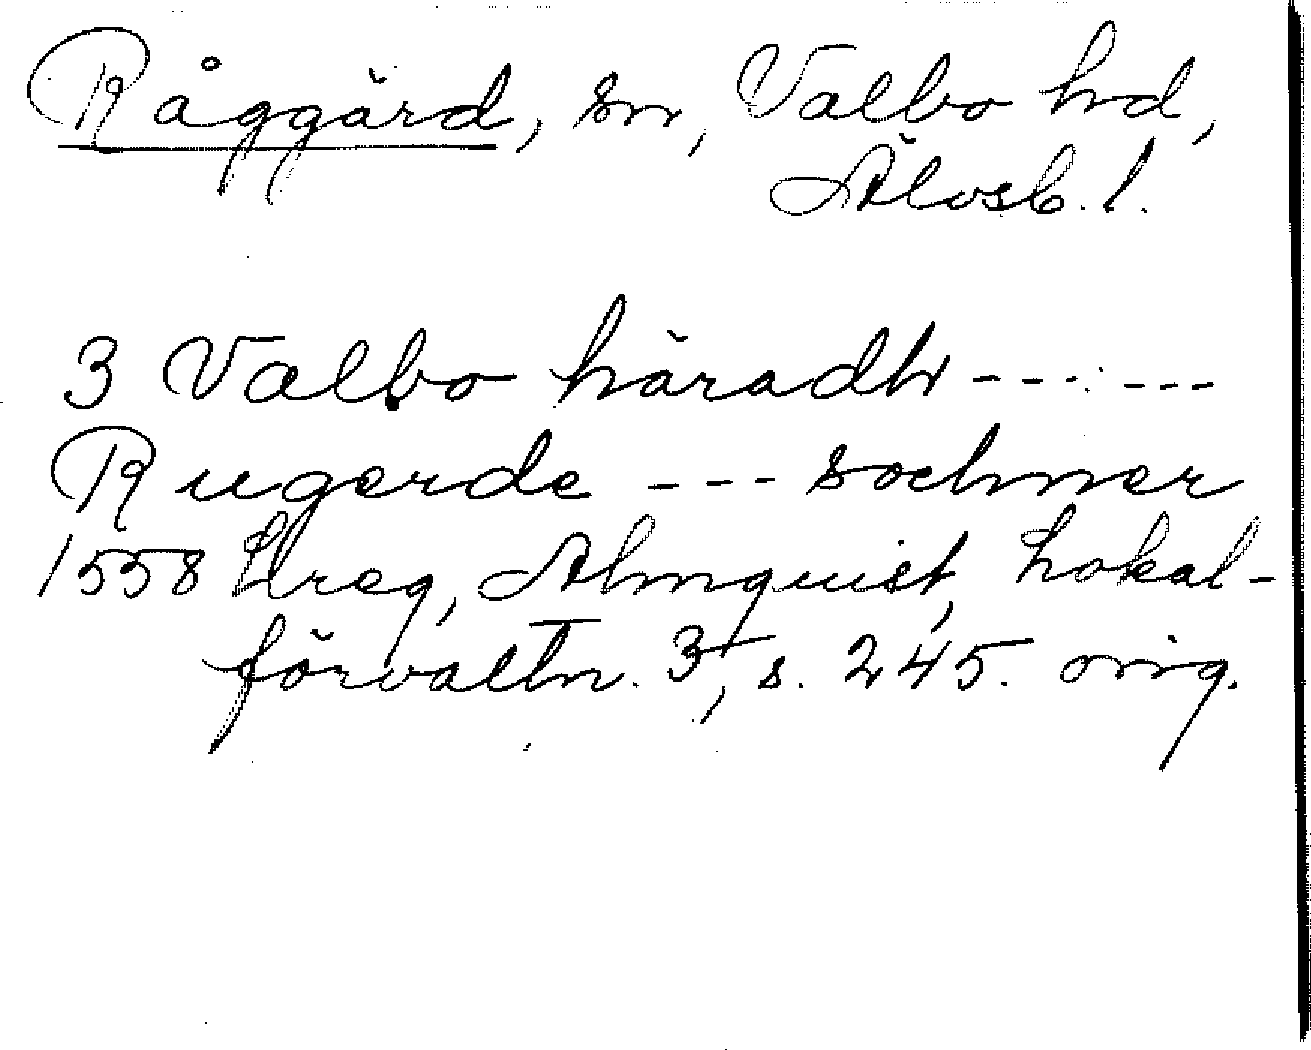 Råggärd, sn, Valbo hd,
Älvsb. l.
3 Valbo häradh ------
Rugerde --- sochner
1558 Ureg, Almquist, Lokal-
förvaltn. 3, s. 245. orig.